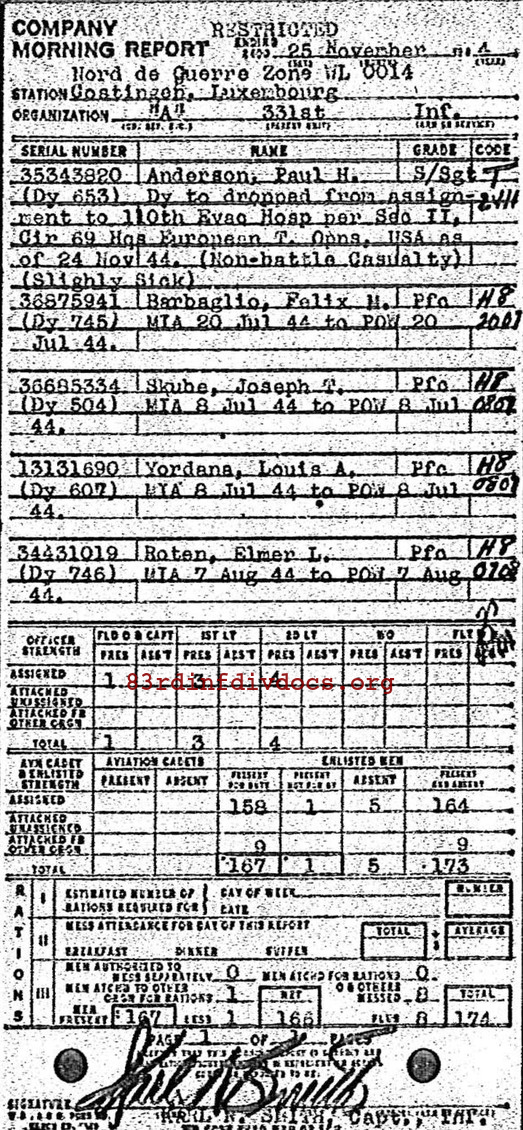 COMPANY RESTRICTED
MORNING REPORT ENDING 25 November 4
Nord de Guerre Zone WL 0014
STATION Gostingen, Luxembourg
ORGANIZATION "A" 331st Inf.
SERIAL NUMBER NAME GRADE CODE
35343820 Anderson, Paul H. S/Sgt T
(Dy 653) Dy to dropped from assign-
ment to 110th Evac Hosp per Sec II,
Cir 69 Hqs European T. Opns, USA as
of 24 Nov 44. (Non-battle Casualty)
(Slighly Sick)
36875941 Barbaglio, Felix M. Pfc H8
(Dy 745) MIA 20 Jul 44 to POW 20 2007
Jul 44.
36685334 Skube, Joseph T. Pfc H8
(Dy 504) MIA 8 Jul 44 to POW 8 Jul 0807
44.
13131690 Yordans, Louis A. Pfc H8
(Dy 607) MIA 8 Jul 44 to POW 8 Jul 0807
44.
34431019 Roten, Elmer L. Pfc H8
(Dy 746) MIA 7 Aug 44 to POW 7 Aug 0708
44.
OFFICER STRENGTH FLD O & CAPT 1ST LT 2D LT WO FLT
PRES ABS'T PRES ABS'T PRES ABS'T PRES ABS'T PRES
ASSIGNED 1 3 4
83rdinfdivdocs.org
ATTACHED UNASSIGNED
ATTACHED FR OTHER ORGN
TOTAL 1 3 4
AVN CADET & ENLISTED STRENGTH AVIATION CADETS ENLISTED MEN
PRESENT ABSENT PRESENT FOR DUTY PRESENT NOT FOR DY ABSENT PRESENT AND ABSENT
ASSIGNED 158 1 5 164
ATTACHED UNASSIGNED
ATTACHED FR OTHER ORGN 9 9
TOTAL 167 1 5 173
RATIONS
I ESTIMATED NUMBER OF RATIONS REQUIRED FOR DAY OF WEEK DATE NUMBER
II MESS ATTENDANCE FOR DAY OF THIS REPORT TOTAL AVERAGE
BREAKFAST DINNER SUPPER
III MEN AUTHORIZED TO MESS SEPARATELY 0 MEN ATCHD FOR RATIONS 0
MEN ATCHD TO OTHER ORGN FOR RATIONS 1 NET O & OTHERS MESSED 8 TOTAL
MEN PRESENT 167 LESS 1 166 PLUS 8 174
PAGE 1 OF 1 PAGES
SIGNATURE
KARL N. SMITH Capt., Inf.